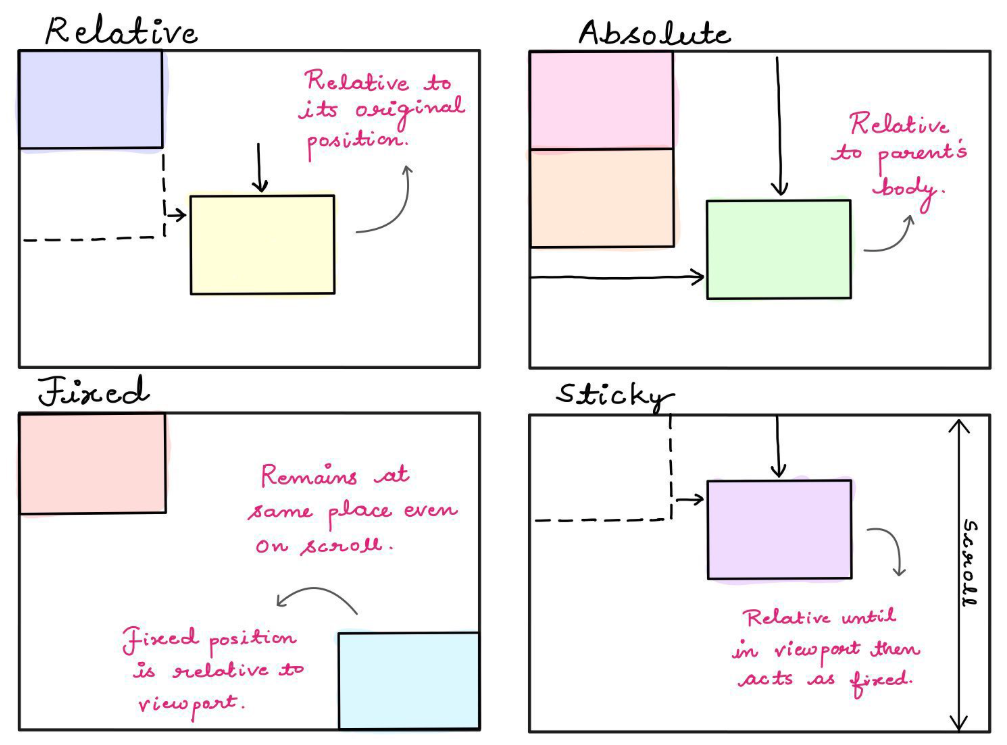 Relative
Relative to
its original
position.
Absolute
Relative
to parent's
body.
Fixed
Remains at
same place even
on scroll.
Fixed position
is relative to
viewport.
Sticky
Scroll
Relative until
in viewport then
acts as fixed.